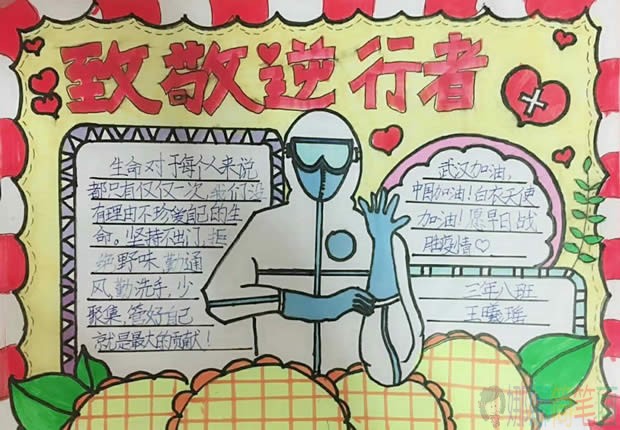 致敬逆行者
生命对于每个人来说
都只有仅仅一次,我们没
有理由不珍爱自己的生
命。坚持不出门,拒
绝野味,勤通
风,勤洗手,少
聚集,管好自己
就是最大的贡献!
武汉加油,
中国加油!白衣天使
加油!愿早日战
胜疫情♡
三年八班
王曦瑶